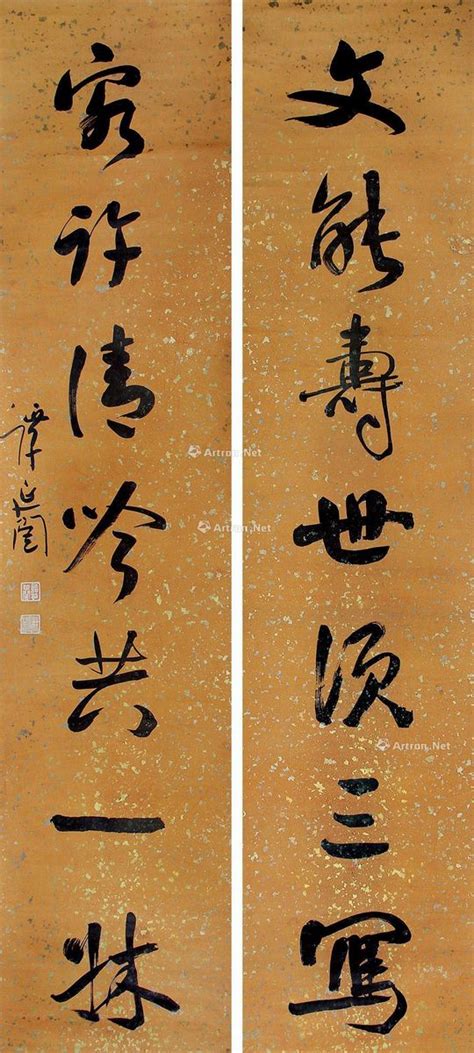 文能壽世須三寫
客許清吟共一牀
譚延闓
Artron.Net
Artron.Net
Artron.Net